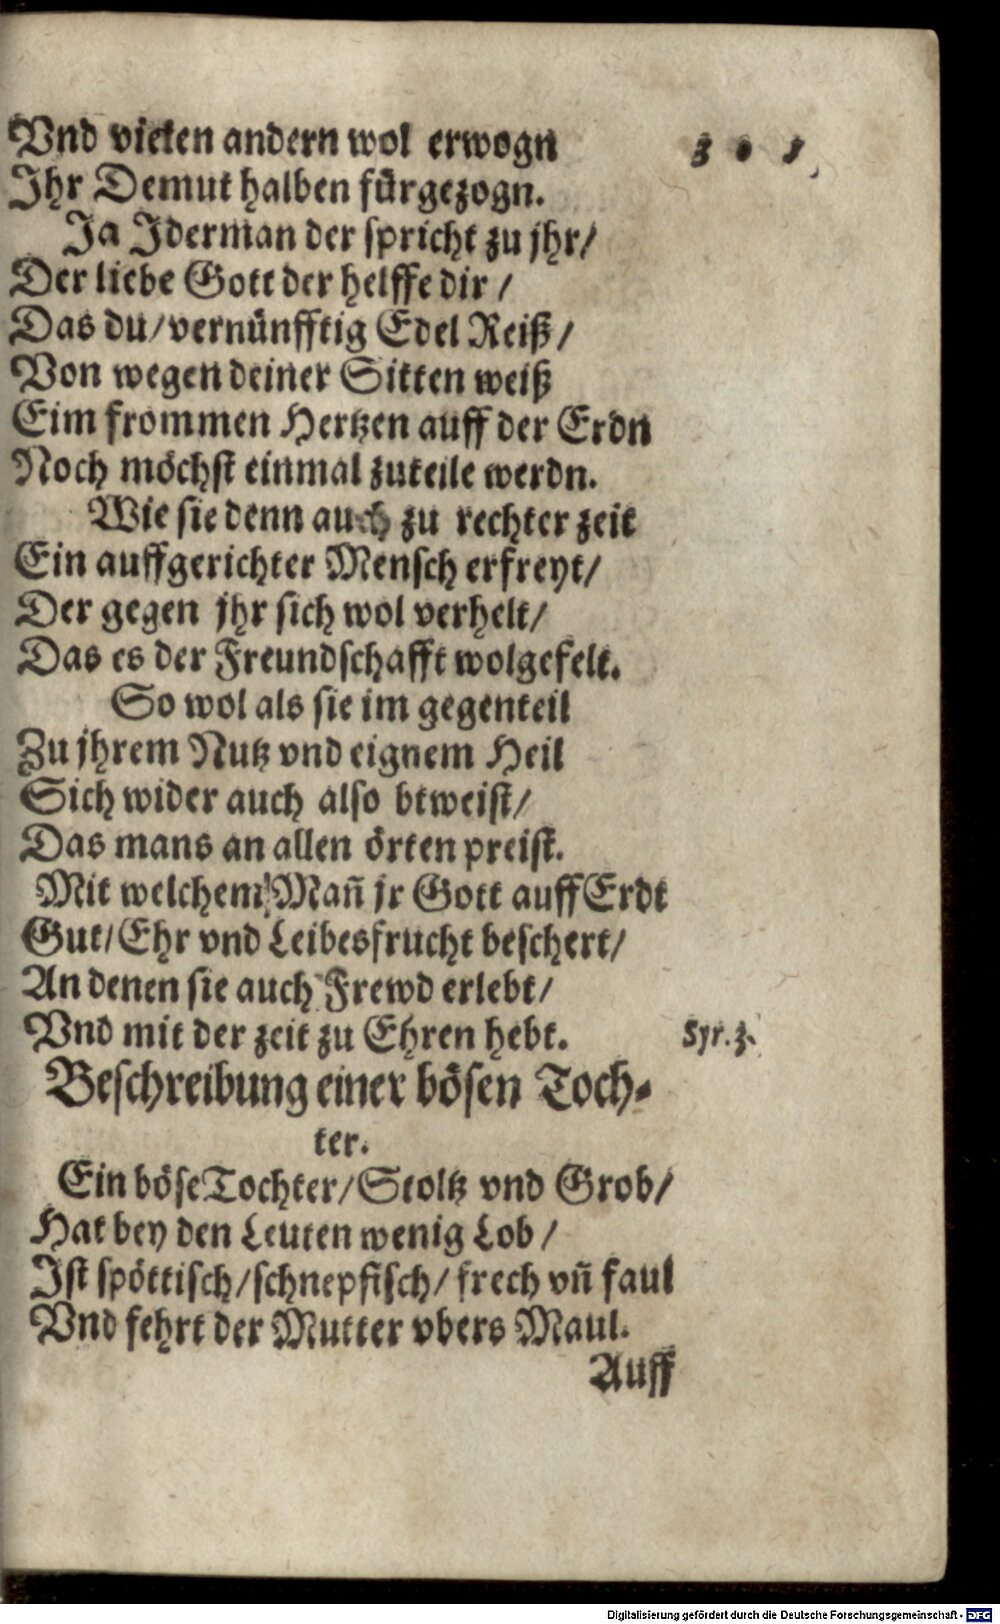 Vnd vielen andern wol erwogn
Ihr Demut halben fürgezogn.
Ja Jderman der spricht zu jhr/
Der liebe Gott der helffe dir /
Das du/vernünfftig Edel Reiß/
Von wegen deiner Sitten weiß
Eim frommen Hertzen auff der Erdn
Noch möchst einmal zuteile werdn.
Wie sie denn auch zu rechter zeit
Ein auffgerichter Mensch erfreyt/
Der gegen jhr sich wol verhelt/
Das es der Freundschafft wolgefelt.
So wol als sie im gegenteil
Zu jhrem Nutz vnd eignem Heil
Sich wider auch also beweist/
Das mans an allen örten preist.
Mit welchem Mañ jr Gott auff Erdt
Gut/Ehr vnd Leibesfrucht beschert/
An denen sie auch Frewd erlebt/
Vnd mit der zeit zu Ehren hebt. Syr.3.
Beschreibung einer bösen Toch-
ter.
Ein böse Tochter/Stoltz vnd Grob/
Hat bey den Leuten wenig Lob /
Ist spöttisch/schnepfisch/ frech vñ faul
Vnd fehrt der Mutter vbers Maul.
Auff
Digitalisierung gefördert durch die Deutsche Forschungsgemeinschaft - DFG